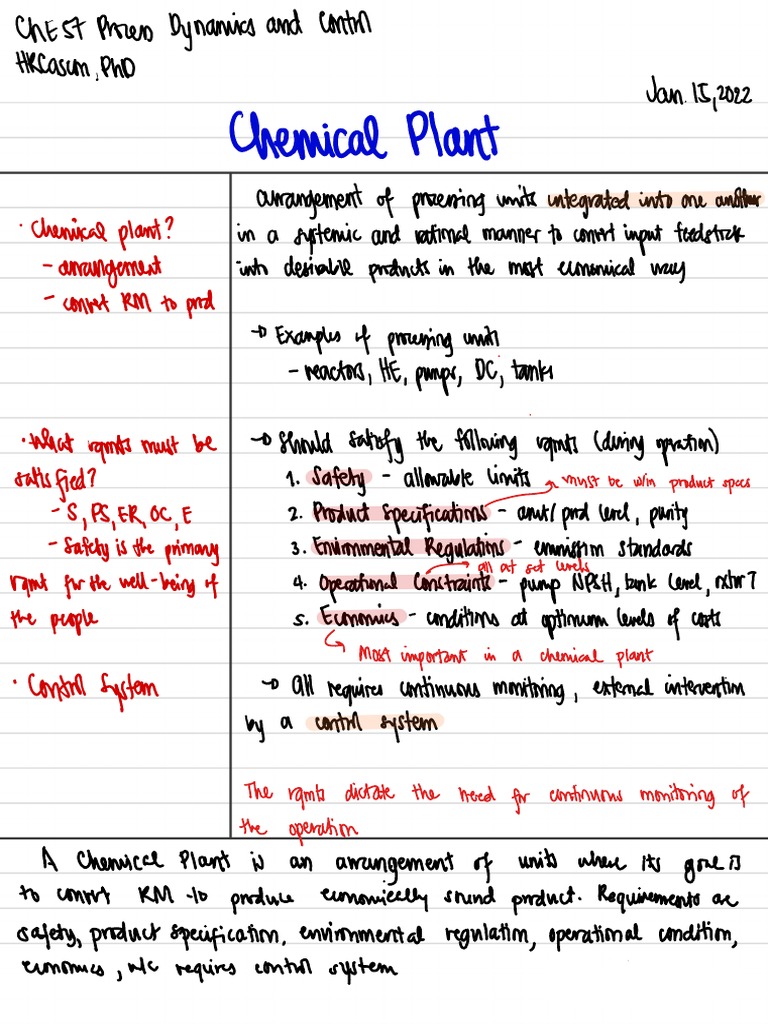 ChE 57 Process Dynamics and Control
HRCasem, PhD
Jan. 15, 2022
Chemical Plant
· Chemical plant?
- arrangement
- convrt RM to prod
arrangement of processing units integrated into one another
in a systemic and rational manner to convrt input feedstock
into desirable products in the most economical way
→ Examples of processing units
- reactors, HE, pumps, DC, tanks
· What rqmts must be
satisfied?
- S, PS, ER, OC, E
- Safety is the primary
rqmt for the well-being of
the people
→ Should satisfy the following rqmts (during operation)
1. Safety - allowable limits
must be w/in product specs
2. Product Specifications - amt/ prod level, purity
3. Environmental Regulations - emission standards
all at set levels
4. Operational Constraints - pump NPSH, tank level, rxtor T
5. Economics - conditions at optimum levels of costs
Most important in a chemical plant
· Control System
→ All requires continuous monitoring, external intervention
by a control system
The rqmts dictate the need for continuous monitoring of
the operation
A Chemical Plant is an arrangement of units where its goal is
to convrt RM to produce economically sound product. Requirements are
safety, product specification, environmental regulation, operational condition,
economics, w/c requires control system